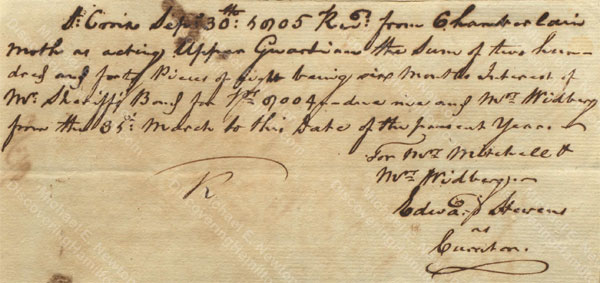 St. Croix Sept. 30th. 1805 Recd. from Chamberlain
Moth as acting Upper Guardian the Sum of two hun-
dred and forty Pieces of eight being six Months Interest of
Mr. Sheriff's Bond for Ps. 8004 - due me and Mrs. Widberg
from the 31st. March to this Date of the present Year
For Mrs. Mitchell &
Mrs. Widberg
Edwd. Stevens
as
Curator.